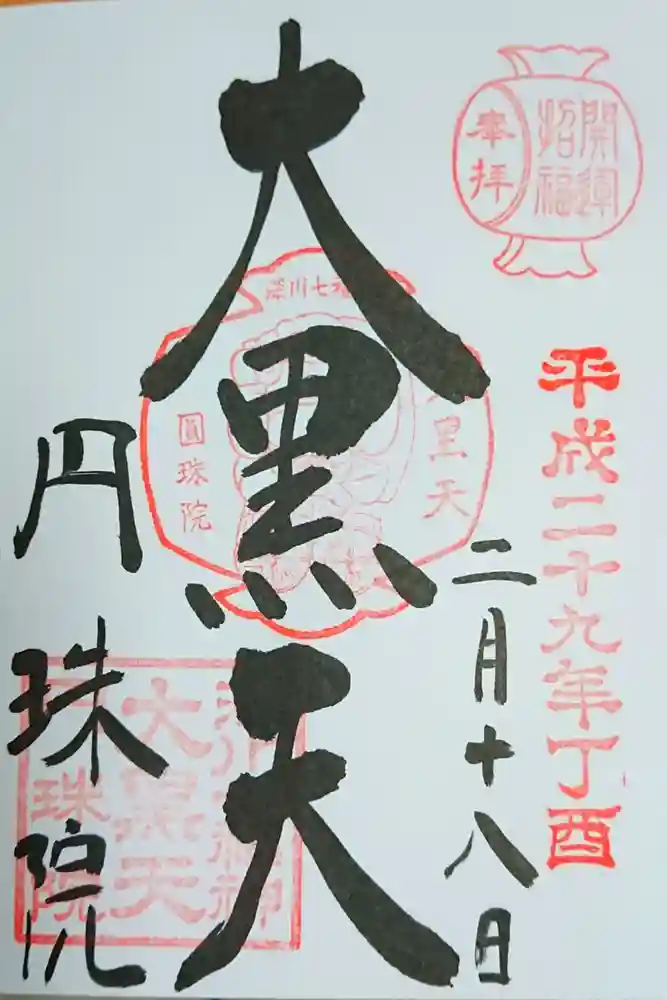 開運
招福
奉拝
平成二十九年丁酉
二月十八日
大黒天
深川七福
黒天
圓珠院
円珠院
大黒天
珠院